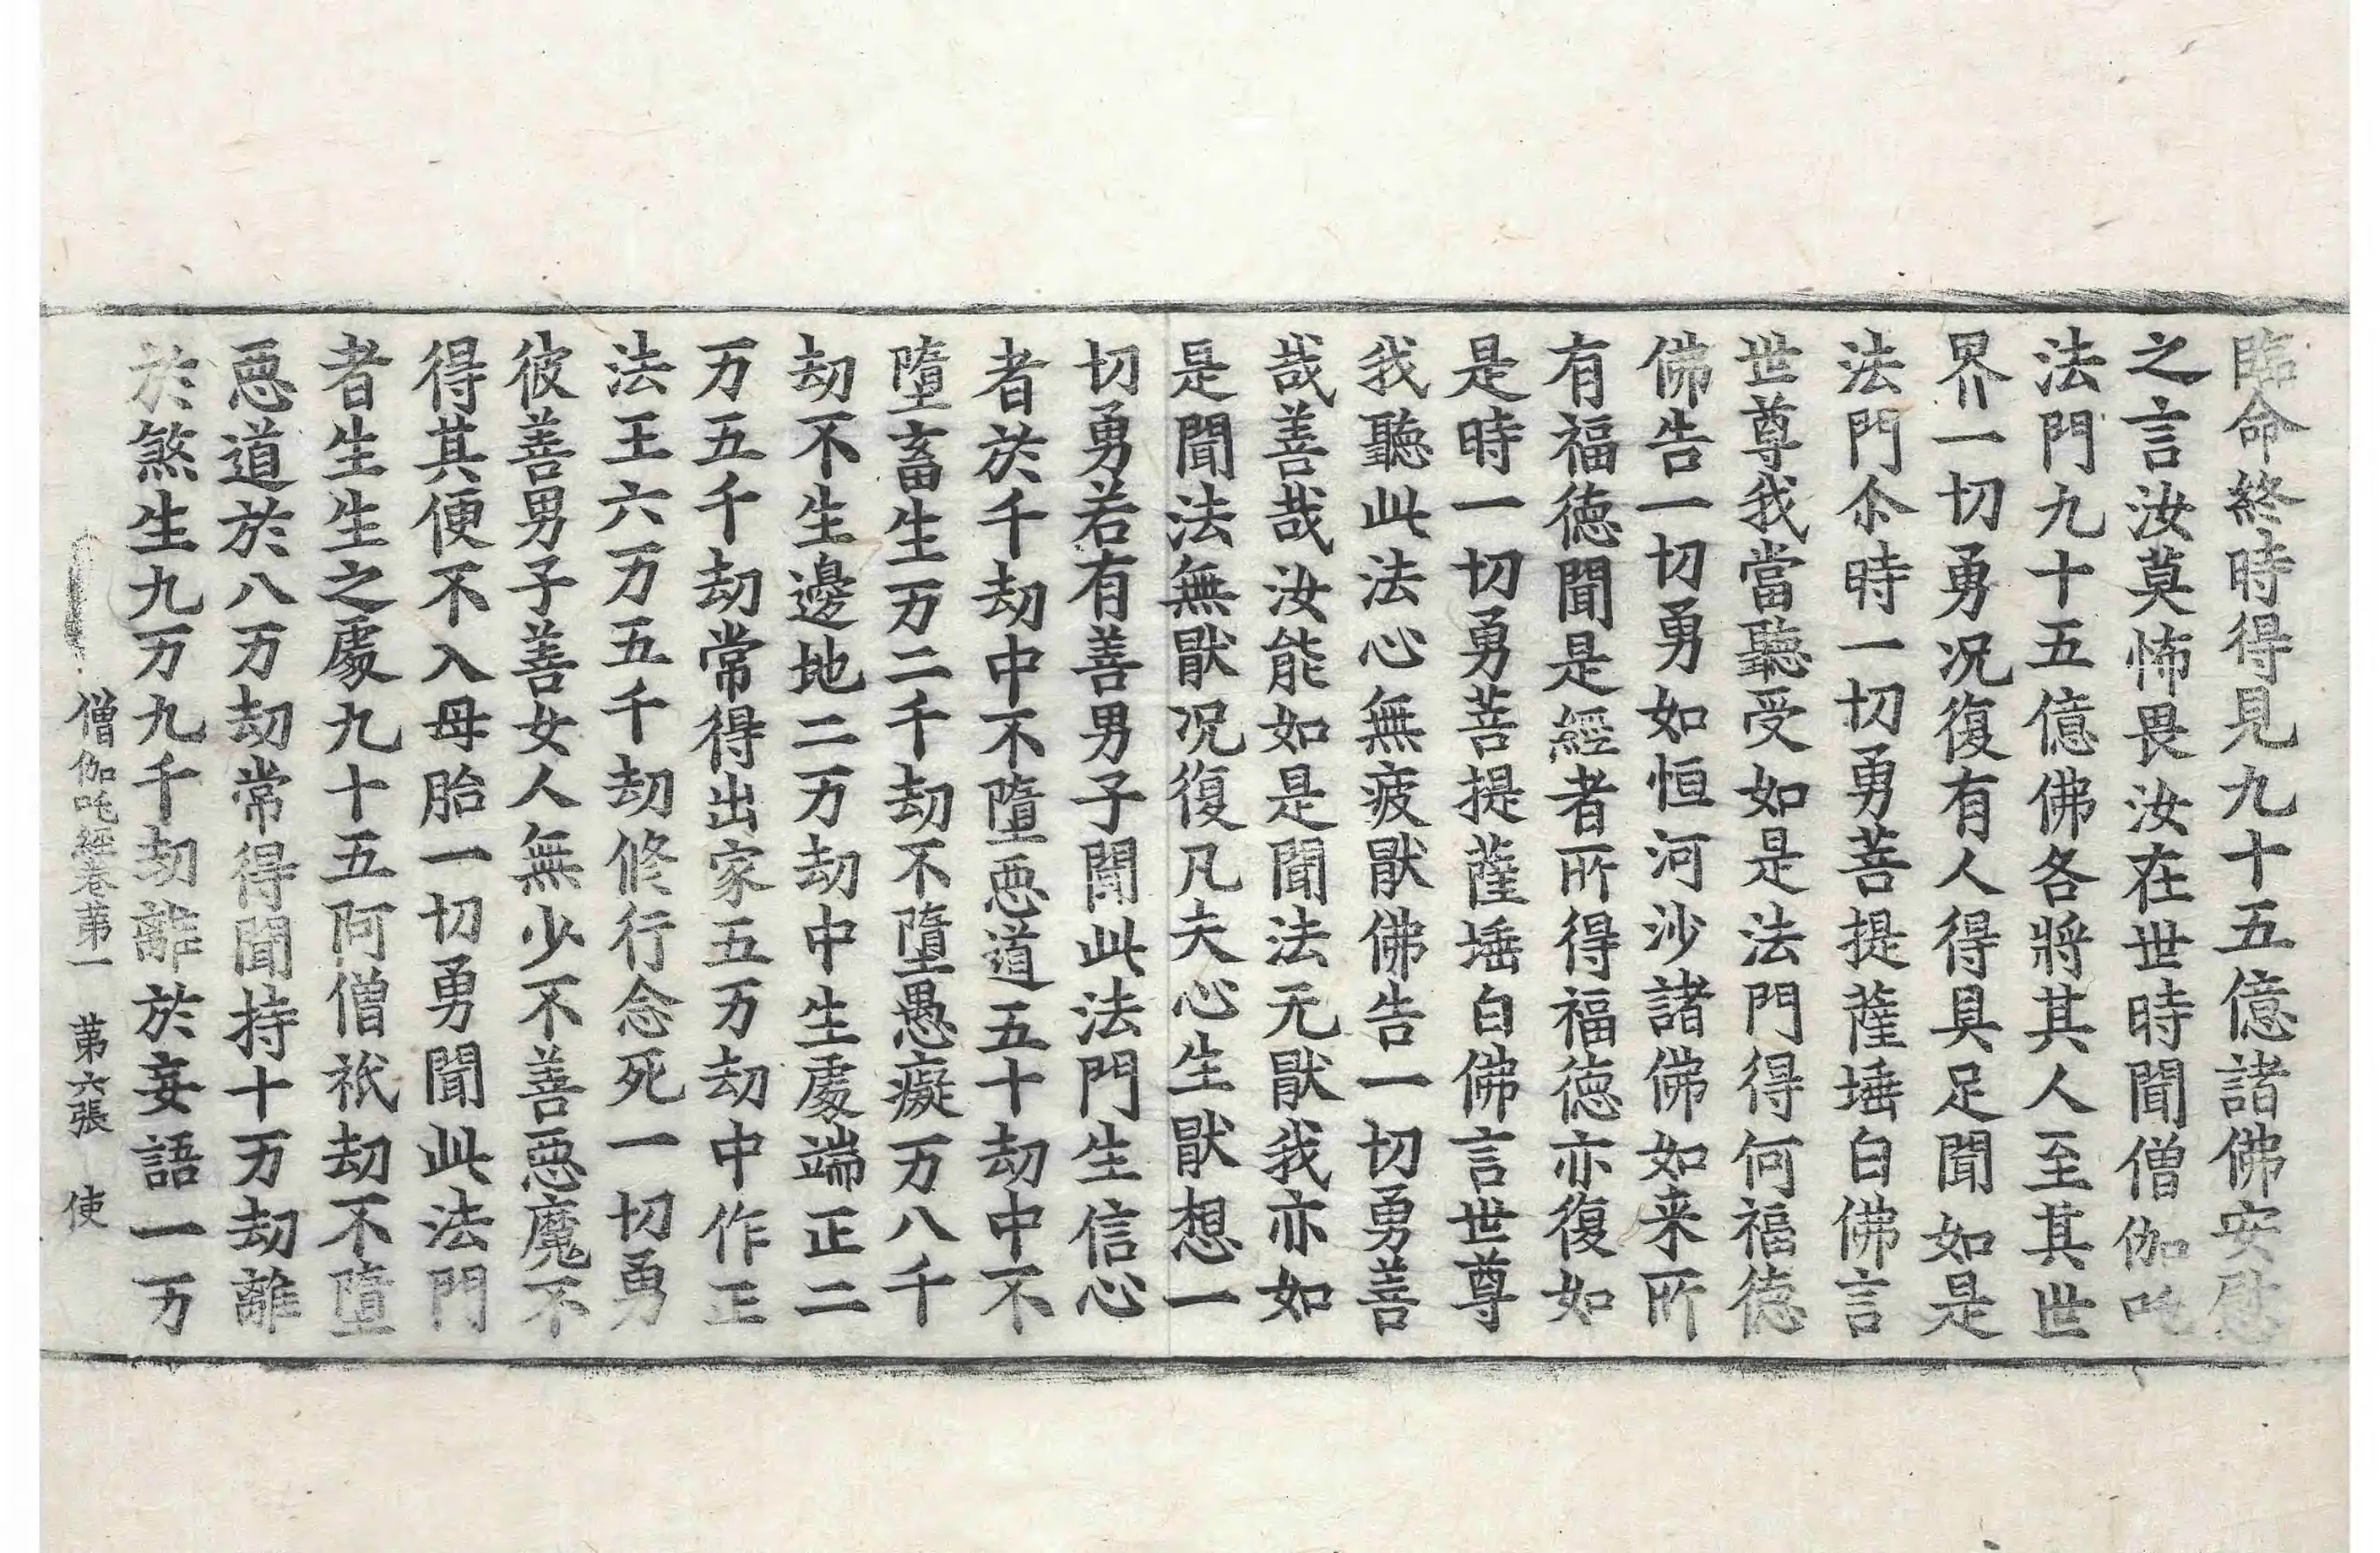 臨命終時得見九十五億諸佛安慰
之言汝莫怖畏汝在世時聞僧伽吒
法門九十五億佛各將其人至其世
界一切勇况復有人得具足聞如是
法門尒時一切勇菩提薩埵白佛言
世尊我當聽受如是法門得何福德
佛告一切勇如恒河沙諸佛如来所
有福德聞是經者所得福德亦復如
是時一切勇菩提薩埵白佛言世尊
我聽此法心無疲猒佛告一切勇善
哉善哉汝能如是聞法无猒我亦如
是聞法無猒况復凡夫心生猒想一
切勇若有善男子聞此法門生信心
者於千劫中不墮惡道五十劫中不
墮畜生万二千劫不墮愚癡万八千
劫不生邊地二万劫中生處端正二
万五千劫常得出家五万劫中作正
法王六万五千劫修行念死一切勇
彼善男子善女人無少不善惡魔不
得其便不入母胎一切勇聞此法門
者生生之處九十五阿僧祇劫不墮
惡道於八万劫常得聞持十万劫離
於煞生九万九千劫離於妄語一万
僧伽吒經卷苐一 苐六張 使